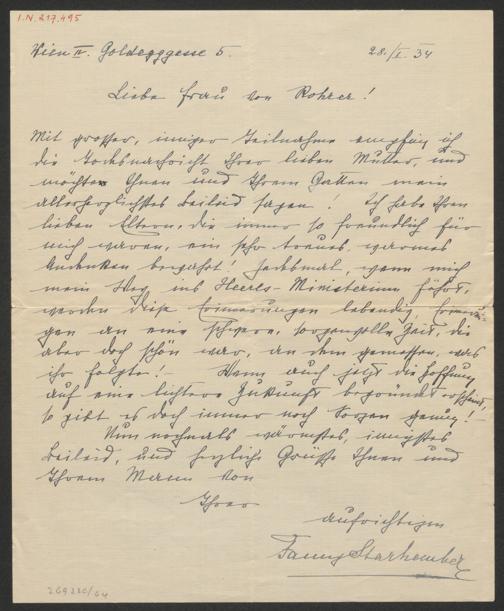 I.N. 217.495
Wien IV. Goldeggasse 5.
28./I. 34
Liebe Frau von Rohrer!
Mit grosser, inniger Teilnahme empfing ich
die Todesnachricht Ihrer lieben Mutter, und
möchte Ihnen und Ihrem Gatten mein
allerherzlichstes Beileid sagen! Ich habe Ihren
lieben Eltern, die immer so freundlich für
mich waren, ein sehr treues, warmes
Andenken bewahrt! Jedesmal, wenn mich
mein Weg ins Heeres-Ministerium führt,
werden diese Erinnerungen lebendig, Erinnerun-
gen an eine schwere, sorgenvolle Zeit, die
aber doch schön war, an dem gemessen, was
ihr folgte! – Wenn auch jetzt die Hoffnung
auf eine lichtere Zukunft begründet erscheint,
so gibt es doch immer noch Sorgen genug! –
Nun nochmals wärmstes, innigstes
Beileid, und herzliche Grüsse Ihnen und
Ihrem Mann von
Ihrer
aufrichtigen
Fanny Starhemberg
269220/64